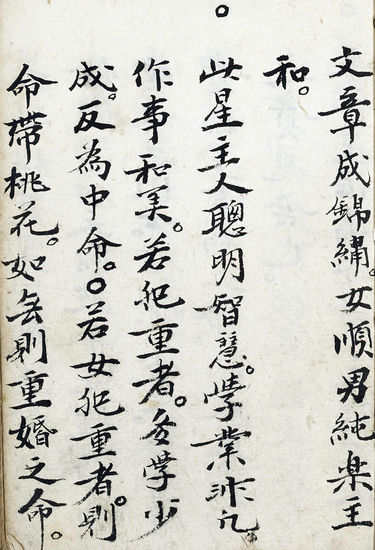 文章成錦繡。女順男純樂主
和。
○此星主人聰明智慧。學業凡
作事和美。若犯重者。多學少
成。反為中命。○若女犯重者。則
命帶桃花。如無則重婚之命。